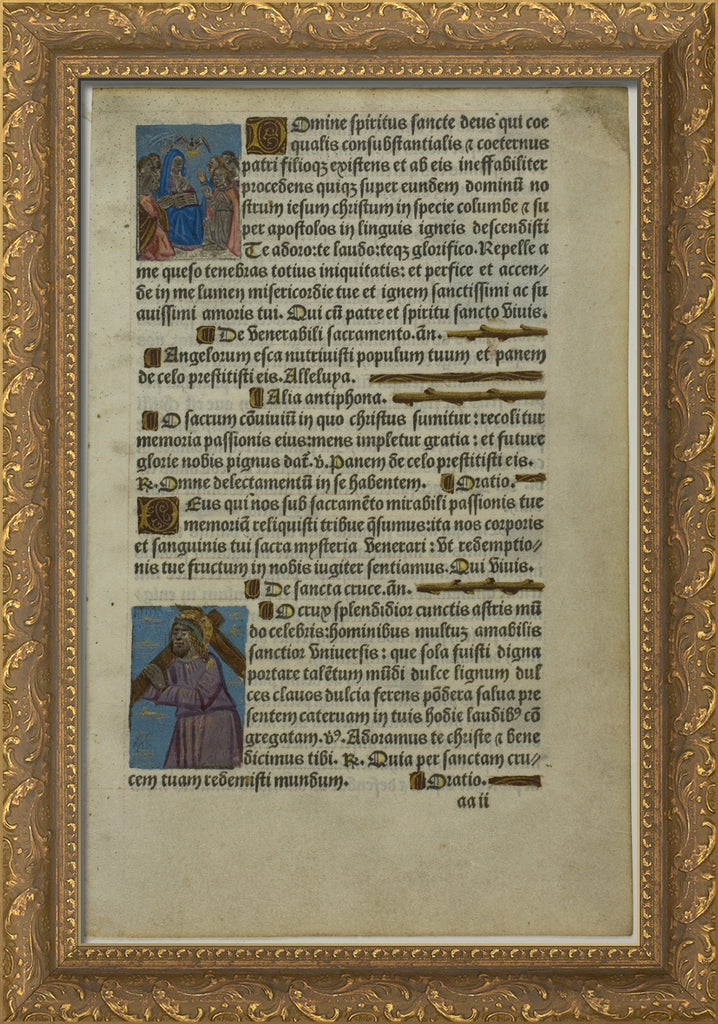 Domine spiritus sancte deus qui coe
qualis consubstantialis ⁊ coeternus
patri filioqꝫ existens et ab eis ineffabiliter
procedens quiqꝫ super eundem dominū no
strum iesum christum in specie columbe ⁊ su
per apostolos in linguis igneis descendisti
Te adoro: te laudo: teqꝫ glorifico. Repelle a
me queso tenebras totius iniquitatis: et perfice et accen⸗
de in me lumen misericordie tue et ignem sanctissimi ac su
auissimi amoris tui. Qui cū patre et spiritu sancto viuis.
De venerabili sacramento. añ.
Angelorum esca nutriuisti populum tuum et panem
de celo prestitisti eis. Alleluya.
Alia antiphona.
O sacrum cōuiuiū in quo christus sumitur: recolitur
memoria passionis eius: mens impletur gratia: et future
glorie nobis pignus dat᷑. v. Panem de celo prestitisti eis.
R. Omne delectamentū in se habentem. Oratio.
Deus qui nos sub sacramēto mirabili passionis tue
memoriā reliquisti tribue q̄sumus: ita nos corporis
et sanguinis tui sacra mysteria venerari: vt redemptio⸗
nis tue fructum in nobis iugiter sentiamus. Qui viuis.
De sancta cruce. añ.
O crux splendidior cunctis astris mū
do celebris: hominibus multuꝫ amabilis
sanctior vniuersis: que sola fuisti digna
portare talētum mūdi dulce lignum dul
ces clauos dulcia ferens pōdera salua pre
sentem cateruam in tuis hodie laudibꝰ cō
gregatam. vꝰ. Adoramus te christe ⁊ bene
dicimus tibi. R. Quia per sanctam cru⸗
cem tuam redemisti mundum. Oratio.
aa ii